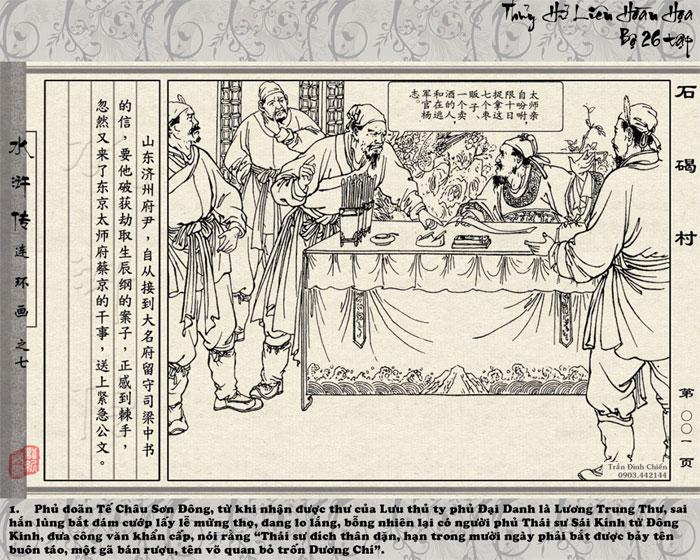 Thủy Hử Liên Hoàn Họa
Bộ 26 tập
水浒传连环画之七
山东济州府尹，自从接到大名府留守司梁中书
的信，要他破获劫取生辰纲的案子，正感到棘手，
忽然又来了东京太师府蔡京的干事，送上紧急公文。
太师亲
自吩咐，
限十日
捉拿这
七个枣
贩子、
一个卖
酒的人，
和逃
军官杨
志。
石碣村
第〇〇一页
Trần Đình Chiến
0903.442144
1. Phủ doãn Tế Châu Sơn Đông, từ khi nhận được thư của Lưu thủ ty phủ Đại Danh là Lương Trung Thư, sai
hắn lùng bắt đám cướp lấy lễ mừng thọ, đang lo lắng, bỗng nhiên lại có người phủ Thái sư Sái Kính từ Đông
Kinh, đưa công văn khẩn cấp, nói rằng “Thái sư đích thân dặn, hạn trong mười ngày phải bắt được bảy tên
buôn táo, một gã bán rượu, tên võ quan bỏ trốn Dương Chí”.